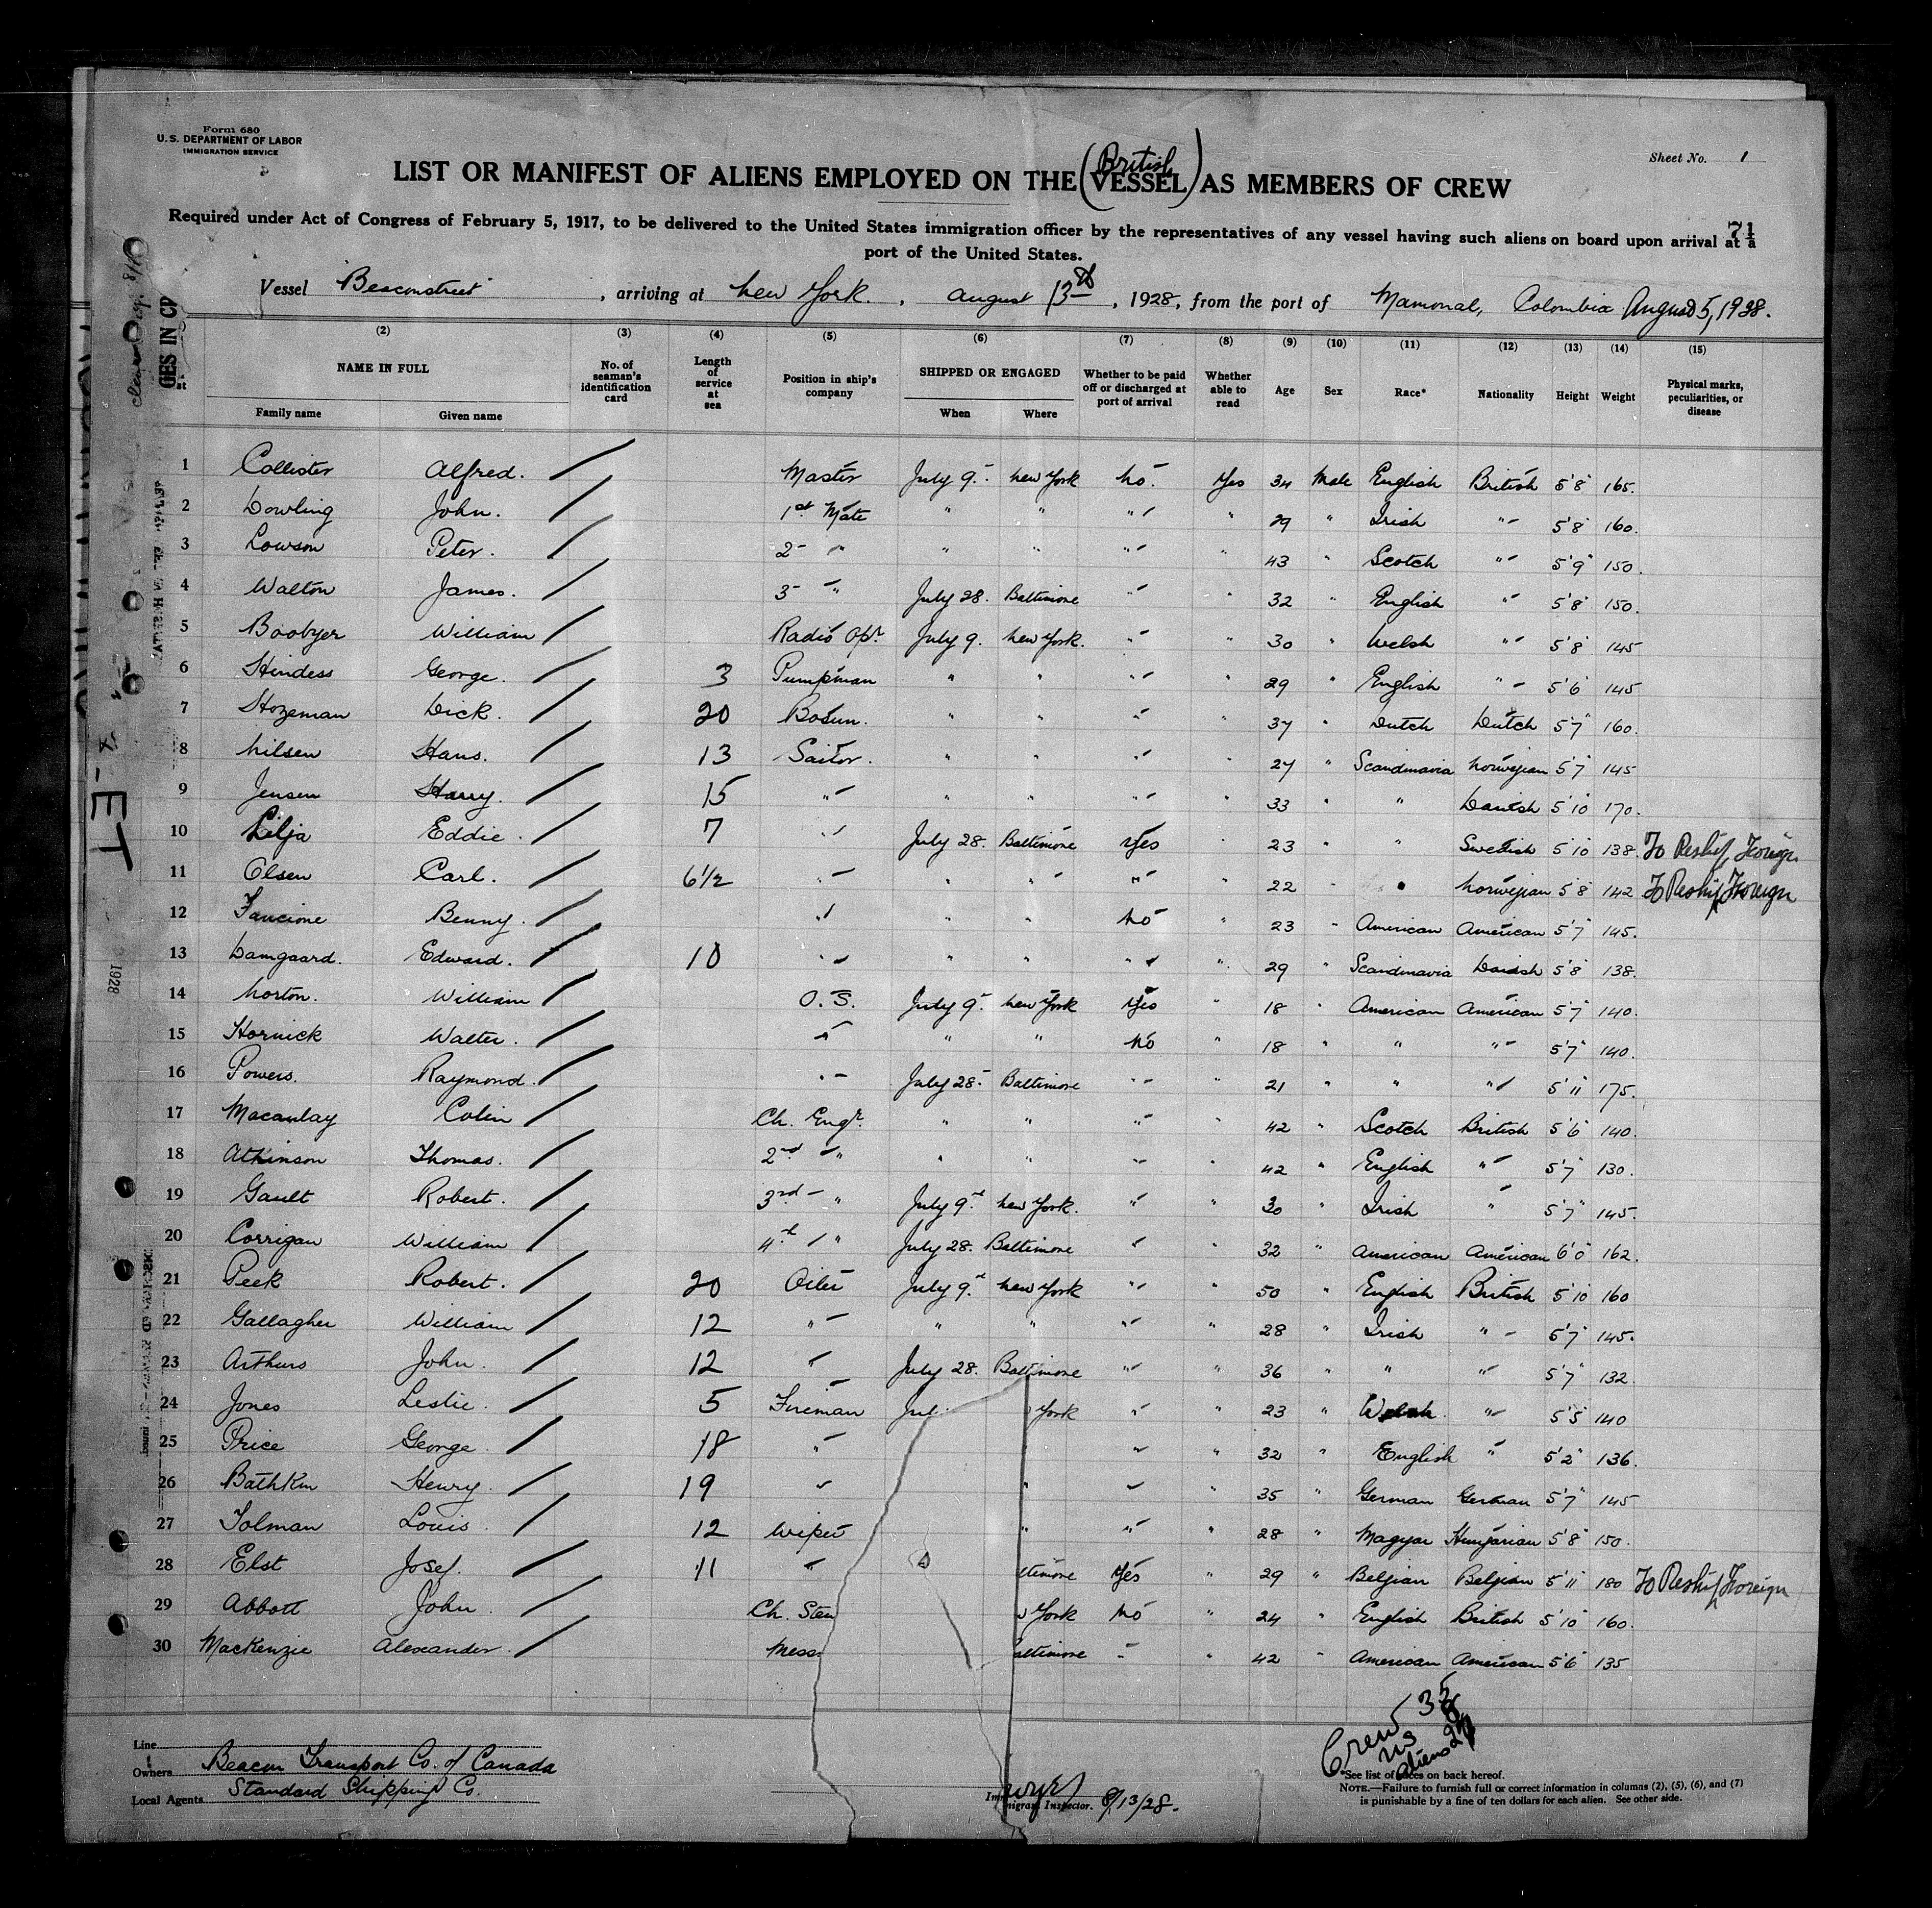 Form 680
U. S. DEPARTMENT OF LABOR
IMMIGRATION SERVICE
Sheet No. 1
LIST OR MANIFEST OF ALIENS EMPLOYED ON THE (British VESSEL) AS MEMBERS OF CREW
Required under Act of Congress of February 5, 1917, to be delivered to the United States immigration officer by the representatives of any vessel having such aliens on board upon arrival at a
port of the United States.
71
Vessel Beaconstreet, arriving at New York., August 13th, 1928, from the port of Mamonal, Colombia August 5, 1928.
(2) (3) (4) (5) (6) (7) (8) (9) (10) (11) (12) (13) (14) (15)
NAME IN FULL No. of seaman's identification card Length of service at sea Position in ship's company SHIPPED OR ENGAGED Whether to be paid off or discharged at port of arrival Whether able to read Age Sex Race* Nationality Height Weight Physical marks, peculiarities, or disease
Family name Given name When Where
1 Collister Alfred. Master July 9. New York No. Yes 34 Male English British 5'8" 165.
2 Dowling John. 1st Mate " " " " 29 " Irish " 5'8" 160.
3 Lowson Peter. 2 " " " " " 43 " Scotch " 5'9" 150.
4 Walton James. 3 " July 28. Baltimore " " 32 " English " 5'8" 150.
5 Boobyer William Radio Opr. July 9. New York. " " 30 " Welsh " 5'8" 145
6 Hindess George. 3 Pumpman " " " " 29 " English " 5'6" 145
7 Stozeman Dick. 20 Bosun. " " " " 37 " Dutch Dutch 5'7" 160.
8 Nilsen Hans. 13 Sailor. " " " " 27 " Scandinavia Norwegian 5'7" 145
9 Jensen Harry. 15 " " " " " 33 " " Danish 5'10" 170.
10 Lilja Eddie. 7 " July 28. Baltimore Yes " 23 " " Swedish 5'10" 138. To Reship Foreign
11 Olsen Carl. 6½ " " " " 22 " Norwegian 5'8" 142 To Reship Foreign
12 Fancione Benny. " " " No " 23 " American American 5'7" 145.
13 Damgaard. Edward. 10 " " " " " 29 " Scandinavia Danish 5'8" 138.
14 Norton. William O. S. July 9. New York Yes " 18 " American American 5'7" 140.
15 Hornick Walter. " " " No " 18 " " " 5'7" 140.
16 Powers. Raymond. " July 28. Baltimore " " 21 " " " 5'11" 175.
17 Macaulay Colin Ch. Engr. " " " " 42 " Scotch British 5'6" 140.
18 Atkinson Thomas. 2nd " " " " " 42 " English " 5'7" 130.
19 Gault Robert. 3rd " July 9. New York. " " 30 " Irish " 5'7" 145.
20 Corrigan William 4th " July 28. Baltimore " " 32 " American American 6'0" 162.
21 Peek Robert. 20 Oiler July 9. New York " " 50 " English British 5'10" 160
22 Gallagher William 12 " " " " " 28 " Irish " 5'7" 145.
23 Arthurs John. 12 " July 28. Baltimore " " 36 " " " 5'7" 132.
24 Jones Leslie. 5 Fireman Jul York " " 23 " Welsh " 5'5" 140
25 Price George. 18 " " " 32 " English " 5'2" 136.
26 Henry. 19 " " " " 35 " German German 5'7" 145
27 Tolman Louis. 12 Wiper " " " 28 " Magyar Hungarian 5'8" 150.
28 Elst Josef. 11 " timore Yes " 29 " Belgian Belgian 5'11" 180 To Reship Foreign
29 Abbott John. Ch. Stew York No " 24 " English British 5'10" 160.
30 MacKenzie Alexander. Mess altimore " " 42 " American American 5'6" 135
Crew 35
US 8
Aliens 27
Line
Owners Beacon Transport Co. of Canada
Local Agents Standard Shipping Co.
Immigrant Inspector. 8/13/28.
*See list of races on back hereof.
NOTE.—Failure to furnish full or correct information in columns (2), (5), (6), and (7)
is punishable by a fine of ten dollars for each alien. See other side.